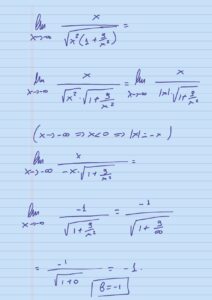 lim x→-∞ x / √(x²(1 + 9/x²)) =
lim x→-∞ x / (√x² · √(1 + 9/x²)) = lim x→-∞ x / (|x| √(1 + 9/x²))
(x→-∞ ⇒ x<0 ⇒ |x| = -x)
lim x→-∞ x / (-x · √(1 + 9/x²)) =
lim x→-∞ -1 / √(1 + 9/x²) = -1 / √(1 + 9/∞)
= -1 / √(1+0) = -1.
B = -1